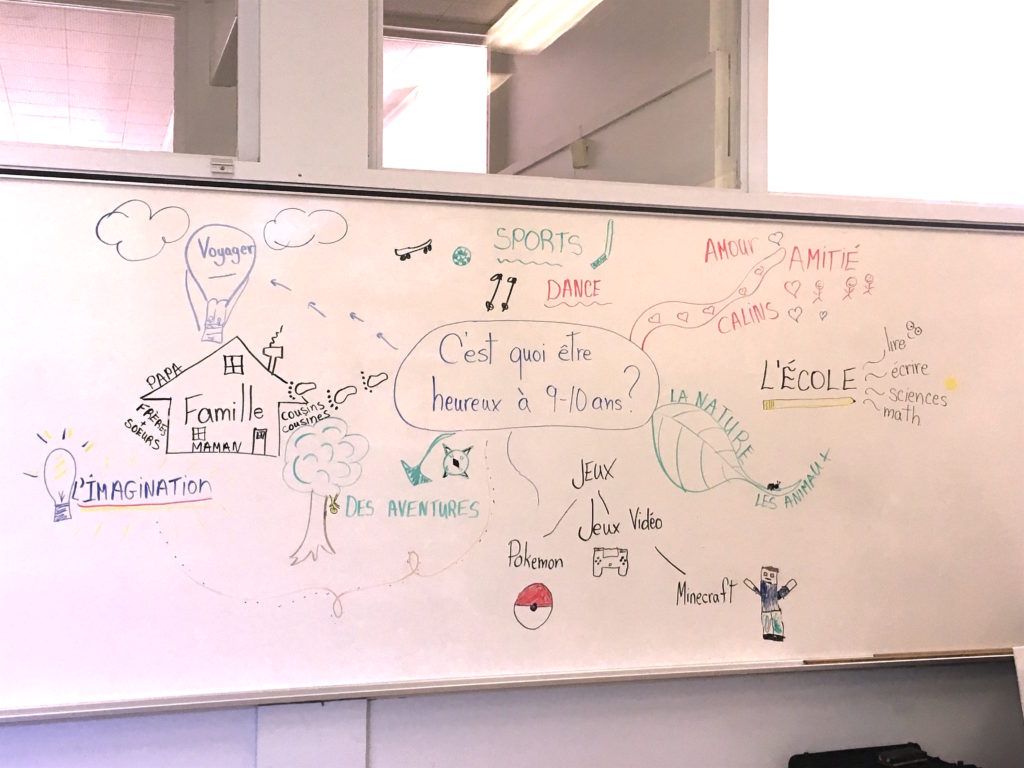 Voyager
SPORTS
DANCE
AMOUR
AMITIÉ
CALINS
C'est quoi être
heureux à 9-10 ans?
PAPA
Famille
FRÈRES
+
SOEURS
MAMAN
cousins
cousines
L'ÉCOLE
lire
écrire
sciences
math
LA NATURE
LES ANIMAUX
L'IMAGINATION
DES AVENTURES
JEUX
Jeux Vidéo
Pokemon
Minecraft